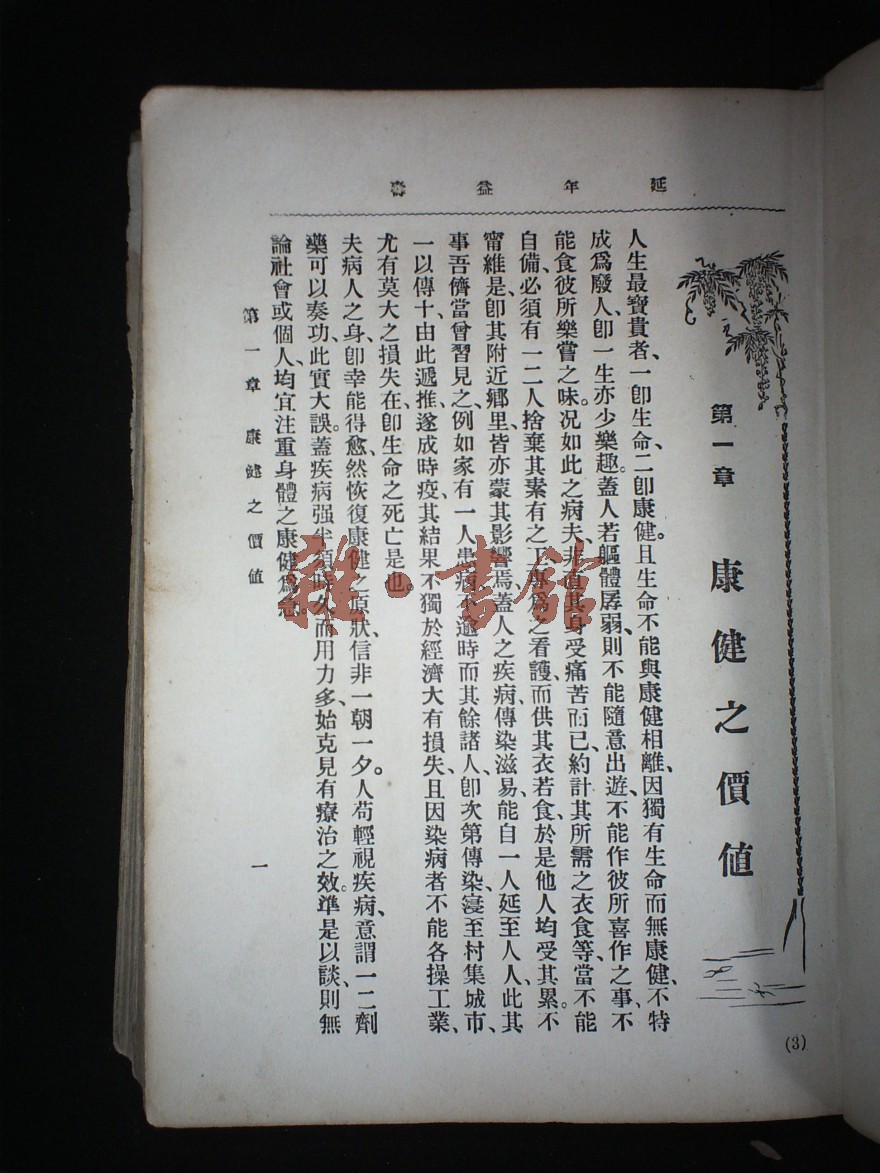 延年益壽
第一章 康健之價值
人生最寶貴者、一卽生命、二卽康健。且生命不能與康健相離、因獨有生命而無康健、不特
成爲廢人、卽一生亦少樂趣。蓋人若軀體孱弱、則不能隨意出遊、不能作彼所喜作之事、不
能食彼所樂嘗之味。况如此之病夫、非直其身受痛苦而已、約計其所需之衣食等、當不能
自備、必須有一二人捨棄其素有之工為之看護、而供其衣若食、於是他人均受其累。不
甯維是、卽其附近鄉里、皆亦蒙其影響焉、蓋人之疾病、傳染滋易、能自一人延至人人、此其
事吾儕當曾習見之、例如家有一人患病、不逾時而其餘諸人、卽次第傳染、寖至村集城市、
一以傳十、由此遞推、遂成時疫、其結果不獨於經濟大有損失、且因染病者不能各操工業、
尤有莫大之損失在、卽生命之死亡是也。
夫病人之身、卽幸能得愈、然恢復康健之原狀、信非一朝一夕。人苟輕視疾病、意謂一二劑
藥可以奏功、此實大誤。蓋疾病强半須時久而用力多、始克見有療治之效。準是以談、則無
論社會或個人、均宜注重身體之康健爲急。
第一章 康健之價值
一
(3)
雅·書館